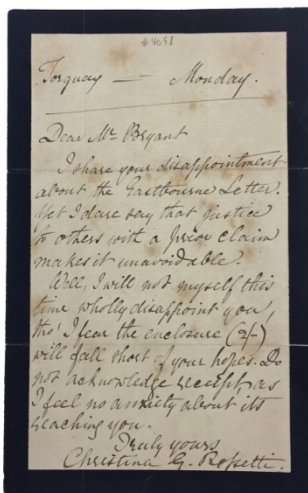 #4098
Torquay — Monday.
Dear Mr Bryant
I share your disappointment
about the Eastbourne Letter.
Yet I dare say that justice
to others with a prior claim
makes it unavoidable.
Well, I will not myself this
time wholly disappoint you,
tho' I fear the enclosure (2/-)
will fall short of your hopes. Do
not acknowledge receipt as
I feel no anxiety about its
reaching you.
Truly yours
Christina G. Rossetti.